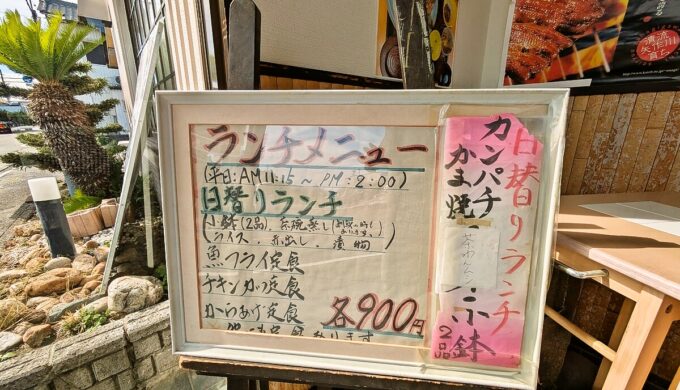 ランチメニュー
(平日:AM 11:15 ~ PM:2:00)
日替りランチ
小鉢(2品)、茶碗蒸し
ライス、赤出し、漬物
魚フライ定食
チキンかつ定食
からあげ定食
各900円
日替りランチ
カンパチ
かま焼
茶わん
小鉢
2品